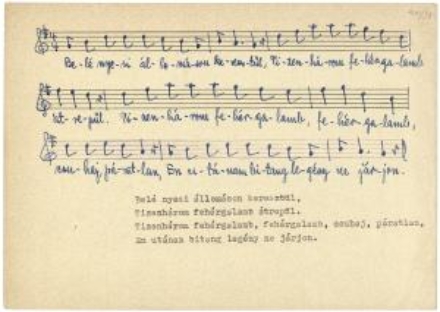 Be-lé nye-si ál-lo-máson ke-resz-tül, Ti-zen-há-rom fehérga-lamb
át-re-pül. Ti-zen-há-rom fe-hér-ga-lamb, fe-hér-ga-lamb,
csu-haj, pá-rat-lan, Én u-tá-nam bi-tang le-gény ne jár-jon.
Belé nyesi állomáson keresztül,
Tizenhárom fehérgalamb átrepül.
Tizenhárom fehérgalamb, fehérgalamb, csuhaj, páratlan,
Én utánam bitang legény ne járjon.